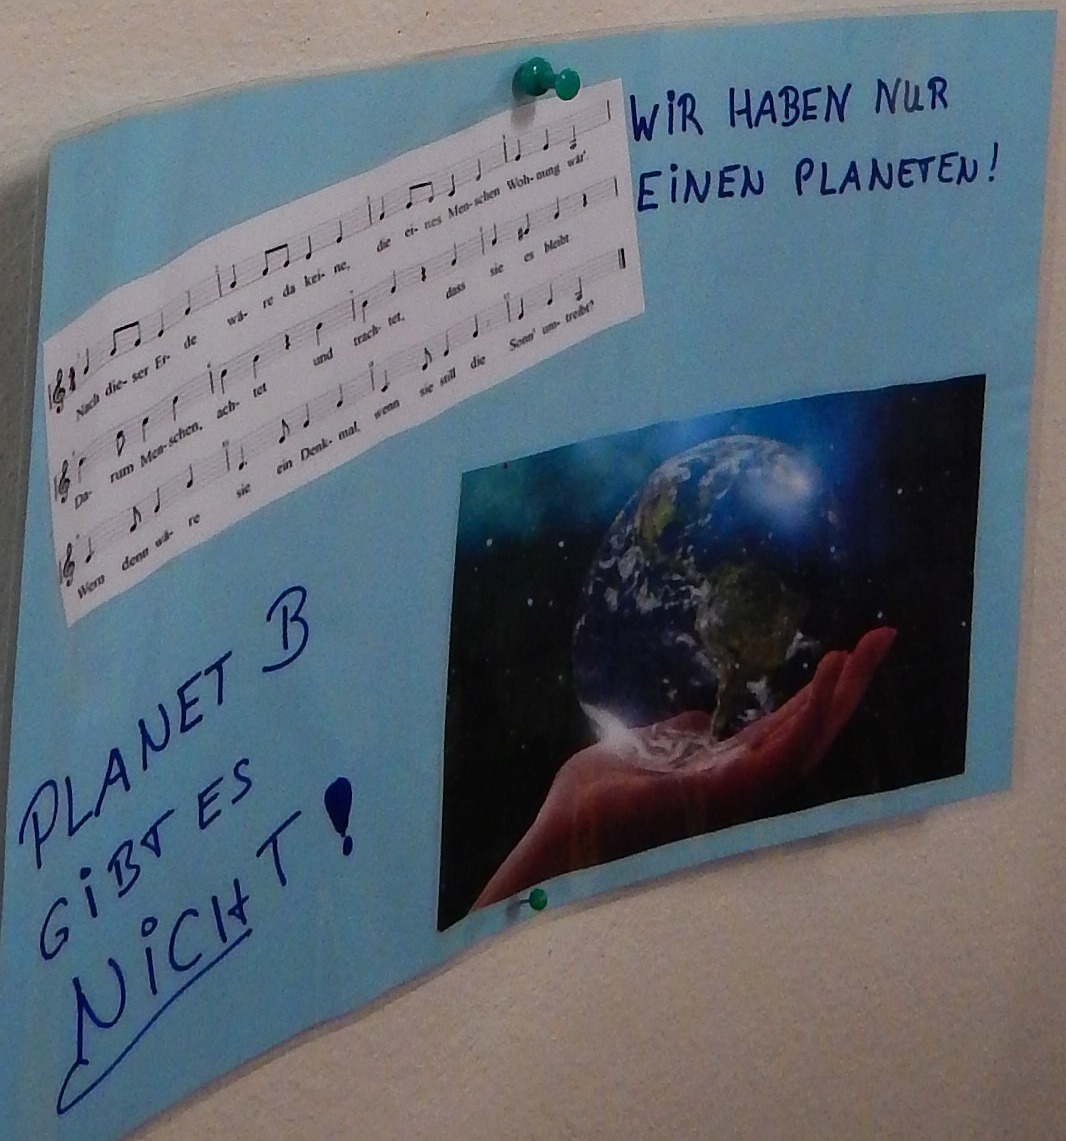 WiR HABEN NUR
EiNEN PLANETEN!
Nach die- ser Er- de wä- re da kei- ne, die ei- nes Men-schen Woh- nung wär'.
Da- rum Men-schen, ach- tet und trach- tet, dass sie es bleibt.
Wem denn wä- re sie ein Denk- mal, wenn sie still die Sonn' um- treibt?
PLANET B
GiBT ES
NiCHT!